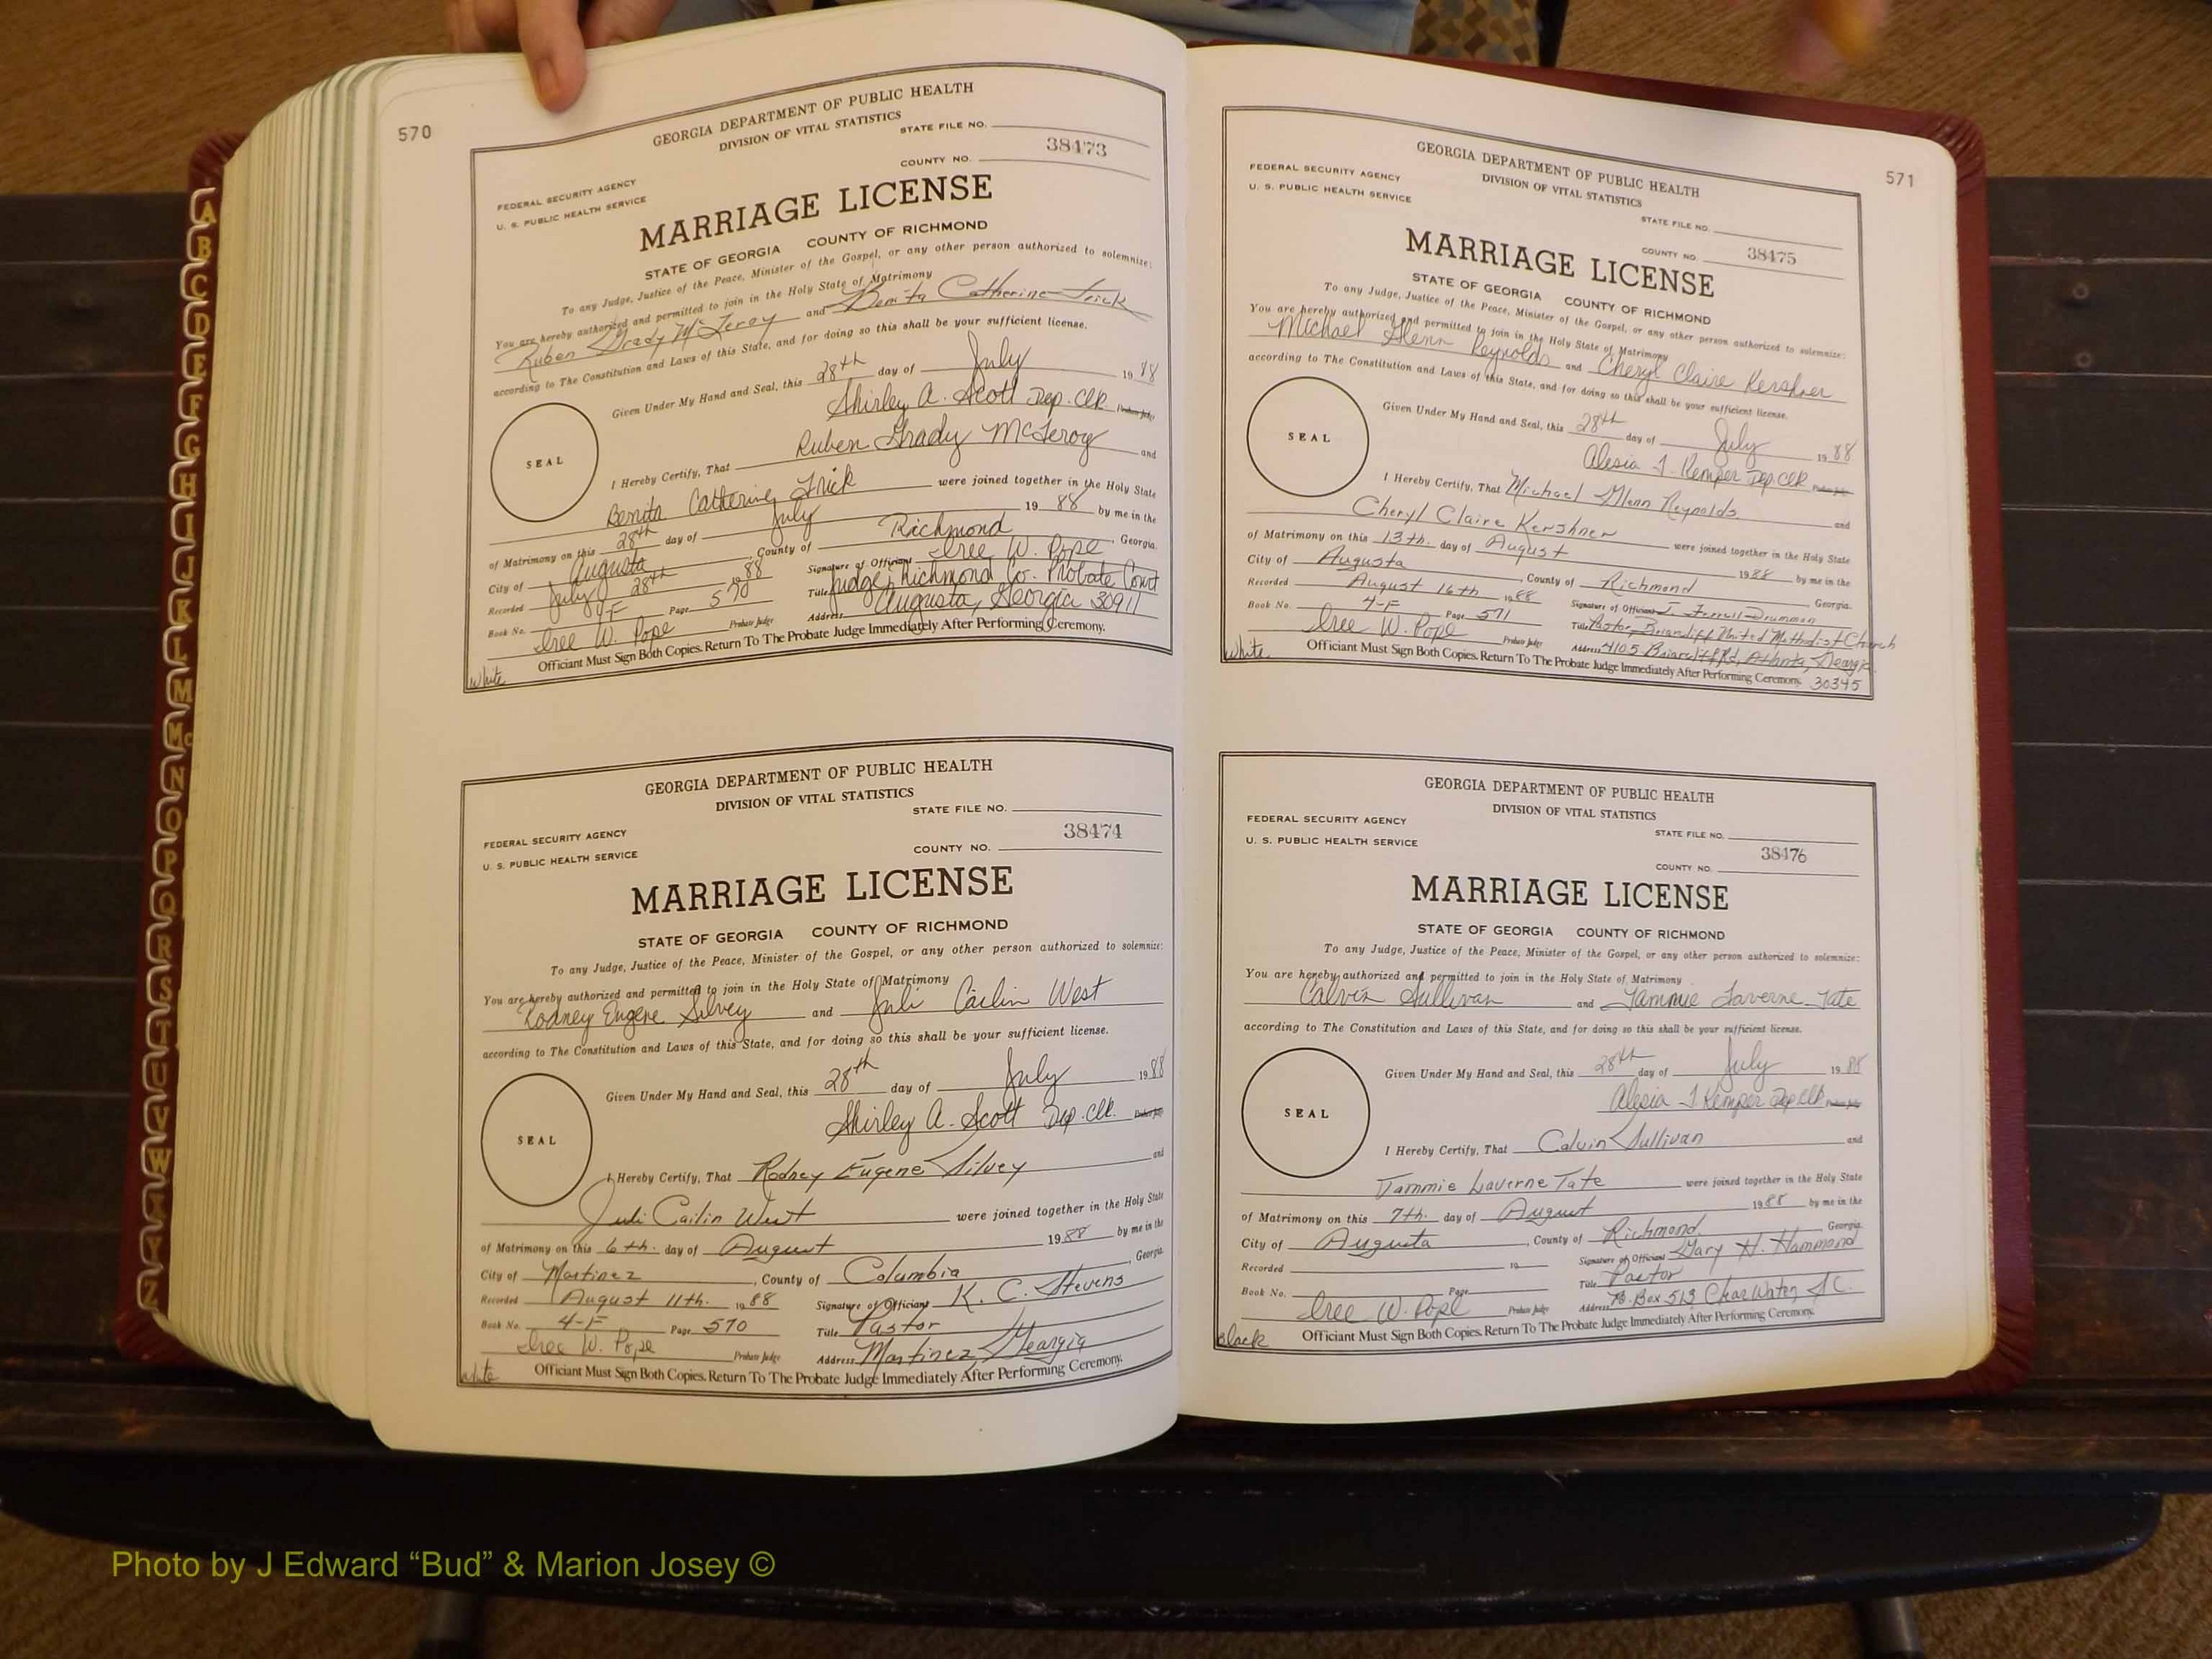 570
GEORGIA DEPARTMENT OF PUBLIC HEALTH
DIVISION OF VITAL STATISTICS
STATE FILE NO.
38473
COUNTY NO.
FEDERAL SECURITY AGENCY
U. S. PUBLIC HEALTH SERVICE
MARRIAGE LICENSE
STATE OF GEORGIA COUNTY OF RICHMOND
To any Judge, Justice of the Peace, Minister of the Gospel, or any other person authorized to solemnize:
You are hereby authorized and permitted to join in the Holy State of Matrimony
Ruben Grady McLeroy and Benita Catherine Frick
according to The Constitution and Laws of this State, and for doing so this shall be your sufficient license.
Given Under My Hand and Seal, this 28th day of July 1988
Shirley A. Scott Dep. Clk. Probate Judge
SEAL
I Hereby Certify, That Ruben Grady McLeroy and
Benita Catherine Frick were joined together in the Holy State
of Matrimony on this 28th day of July 1988 by me in the
City of Augusta, County of Richmond, Georgia.
Recorded July 28th 1988 Signature of Officiant Iree W. Pope
Book No. 4-F Page 570 Title Judge, Richmond Co. Probate Court
Iree W. Pope Probate Judge Address Augusta, Georgia 30911
Officiant Must Sign Both Copies. Return To The Probate Judge Immediately After Performing Ceremony.
White
GEORGIA DEPARTMENT OF PUBLIC HEALTH
DIVISION OF VITAL STATISTICS
STATE FILE NO.
38474
COUNTY NO.
FEDERAL SECURITY AGENCY
U. S. PUBLIC HEALTH SERVICE
MARRIAGE LICENSE
STATE OF GEORGIA COUNTY OF RICHMOND
To any Judge, Justice of the Peace, Minister of the Gospel, or any other person authorized to solemnize:
You are hereby authorized and permitted to join in the Holy State of Matrimony
Rodney Eugene Silvey and Juli Cailin West
according to The Constitution and Laws of this State, and for doing so this shall be your sufficient license.
Given Under My Hand and Seal, this 28th day of July 1988
Shirley A. Scott Dep. Clk. Probate Judge
SEAL
I Hereby Certify, That Rodney Eugene Silvey and
Juli Cailin West were joined together in the Holy State
of Matrimony on this 6th. day of August 1988 by me in the
City of Martinez, County of Columbia, Georgia.
Recorded August 11th. 1988 Signature of Officiant K. C. Stevens
Book No. 4-F Page 570 Title Pastor
Iree W. Pope Probate Judge Address Martinez, Georgia
Officiant Must Sign Both Copies. Return To The Probate Judge Immediately After Performing Ceremony.
White
571
GEORGIA DEPARTMENT OF PUBLIC HEALTH
DIVISION OF VITAL STATISTICS
FEDERAL SECURITY AGENCY
U. S. PUBLIC HEALTH SERVICE
STATE FILE NO.
38475
COUNTY NO.
MARRIAGE LICENSE
STATE OF GEORGIA COUNTY OF RICHMOND
To any Judge, Justice of the Peace, Minister of the Gospel, or any other person authorized to solemnize:
You are hereby authorized and permitted to join in the Holy State of Matrimony
Michael Glenn Reynolds and Cheryl Claire Kershner
according to The Constitution and Laws of this State, and for doing so this shall be your sufficient license.
Given Under My Hand and Seal, this 28th day of July 1988
Alesia J. Kemper Dep. Clk Probate Judge
SEAL
I Hereby Certify, That Michael Glenn Reynolds and
Cheryl Claire Kershner were joined together in the Holy State
of Matrimony on this 13th. day of August 1988 by me in the
City of Augusta, County of Richmond Georgia.
Recorded August 16th 1988 Signature of Officiant J. Ferrell Drummon
Book No. 4-F Page 571 Title Pastor, Briarcliff United Methodist Church
Iree W. Pope Probate Judge Address 4105 Briarcliff Rd, Atlanta, Georgia
30345
Officiant Must Sign Both Copies. Return To The Probate Judge Immediately After Performing Ceremony.
White
GEORGIA DEPARTMENT OF PUBLIC HEALTH
DIVISION OF VITAL STATISTICS
FEDERAL SECURITY AGENCY
U. S. PUBLIC HEALTH SERVICE
STATE FILE NO.
38476
COUNTY NO.
MARRIAGE LICENSE
STATE OF GEORGIA COUNTY OF RICHMOND
To any Judge, Justice of the Peace, Minister of the Gospel, or any other person authorized to solemnize:
You are hereby authorized and permitted to join in the Holy State of Matrimony
Calvin Sullivan and Tammie Laverne Tate
according to The Constitution and Laws of this State, and for doing so this shall be your sufficient license.
Given Under My Hand and Seal, this 28th day of July 1988
Alesia J. Kemper Dep Clk Probate Judge
SEAL
I Hereby Certify, That Calvin Sullivan and
Tammie Laverne Tate were joined together in the Holy State
of Matrimony on this 7th. day of August 1988 by me in the
City of Augusta, County of Richmond Georgia.
Recorded 19 Signature of Officiant Gary H. Hammond
Book No. Page Title Pastor
Iree W. Pope Probate Judge Address P.O. Box 513 S.C.
Officiant Must Sign Both Copies. Return To The Probate Judge Immediately After Performing Ceremony.
Black
A
B
C
D
E
F
G
H
I
J
K
L
M
Mc
N
O
P
Q
R
S
T
U
V
W
X
Y
Z
Photo by J Edward “Bud” & Marion Josey ©